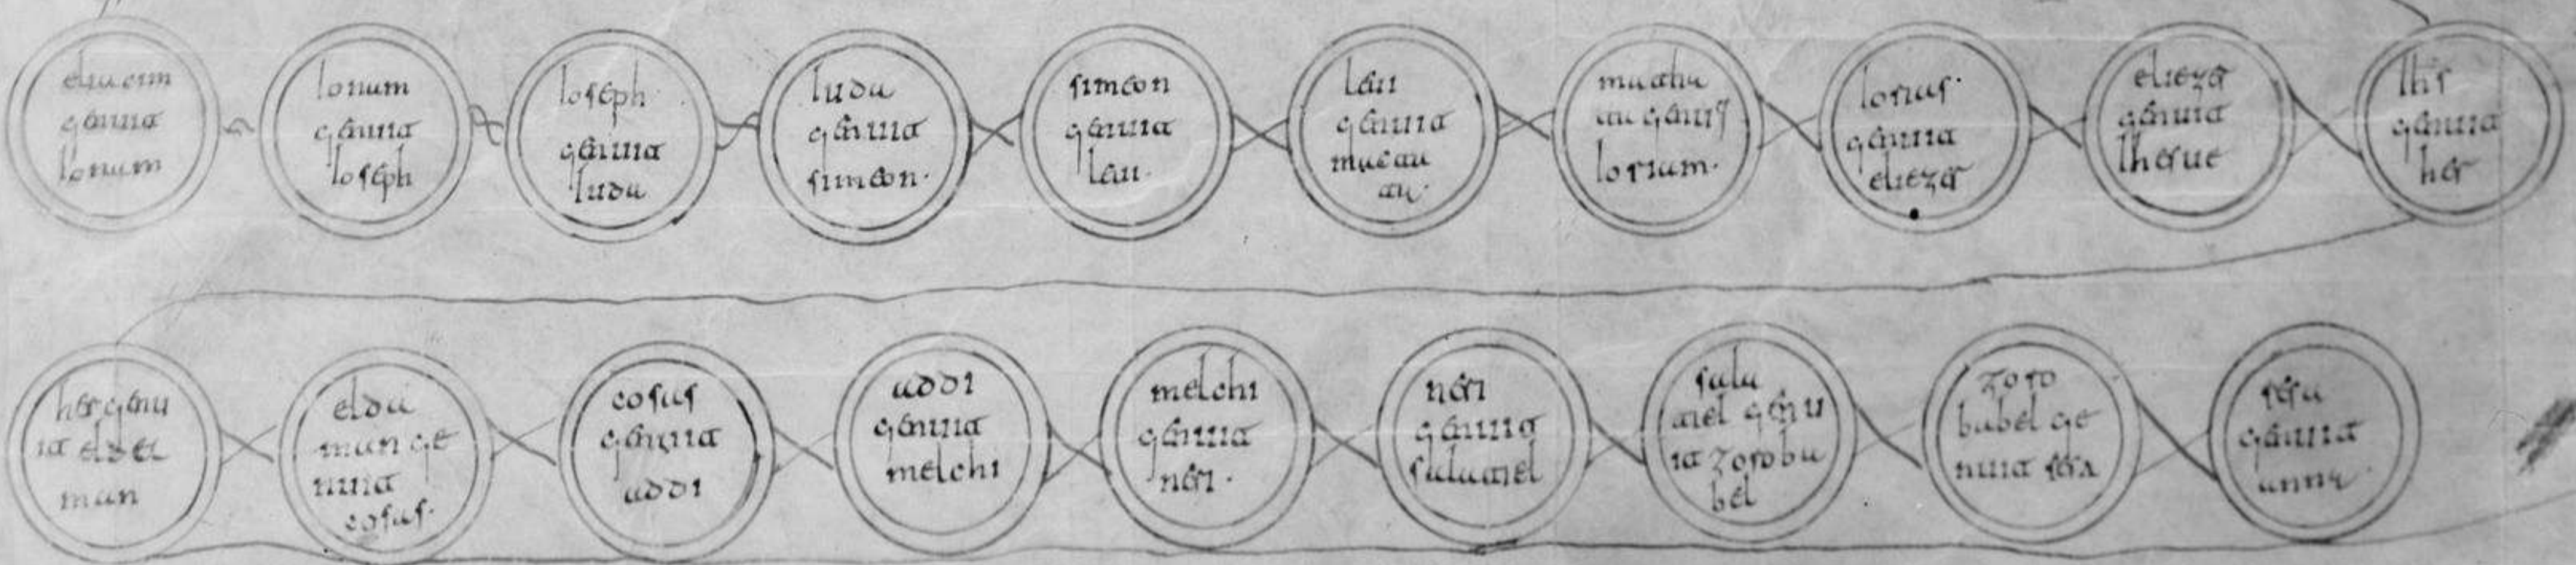 eliacim
genuit
Ionam
Ionam
genuit
Ioseph
Ioseph
genuit
Iuda
Iuda
genuit
simeon.
simeon
genuit
leui.
leui
genuit
matat.
genuit
Ioriam.
Iorias.
genuit
eliezer
eliezer
genuit
Ihesue
Ihs
genuit
her
her genu
it elda
man
elda
man ge
nuit
cosas.
cosas
genuit
addi
addi
genuit
melchi
melchi
genuit
neri.
neri
genuit
salatiel
sala
tiel genu
it zoroba
bel
zoro
babel ge
nuit resa
resa
genuit